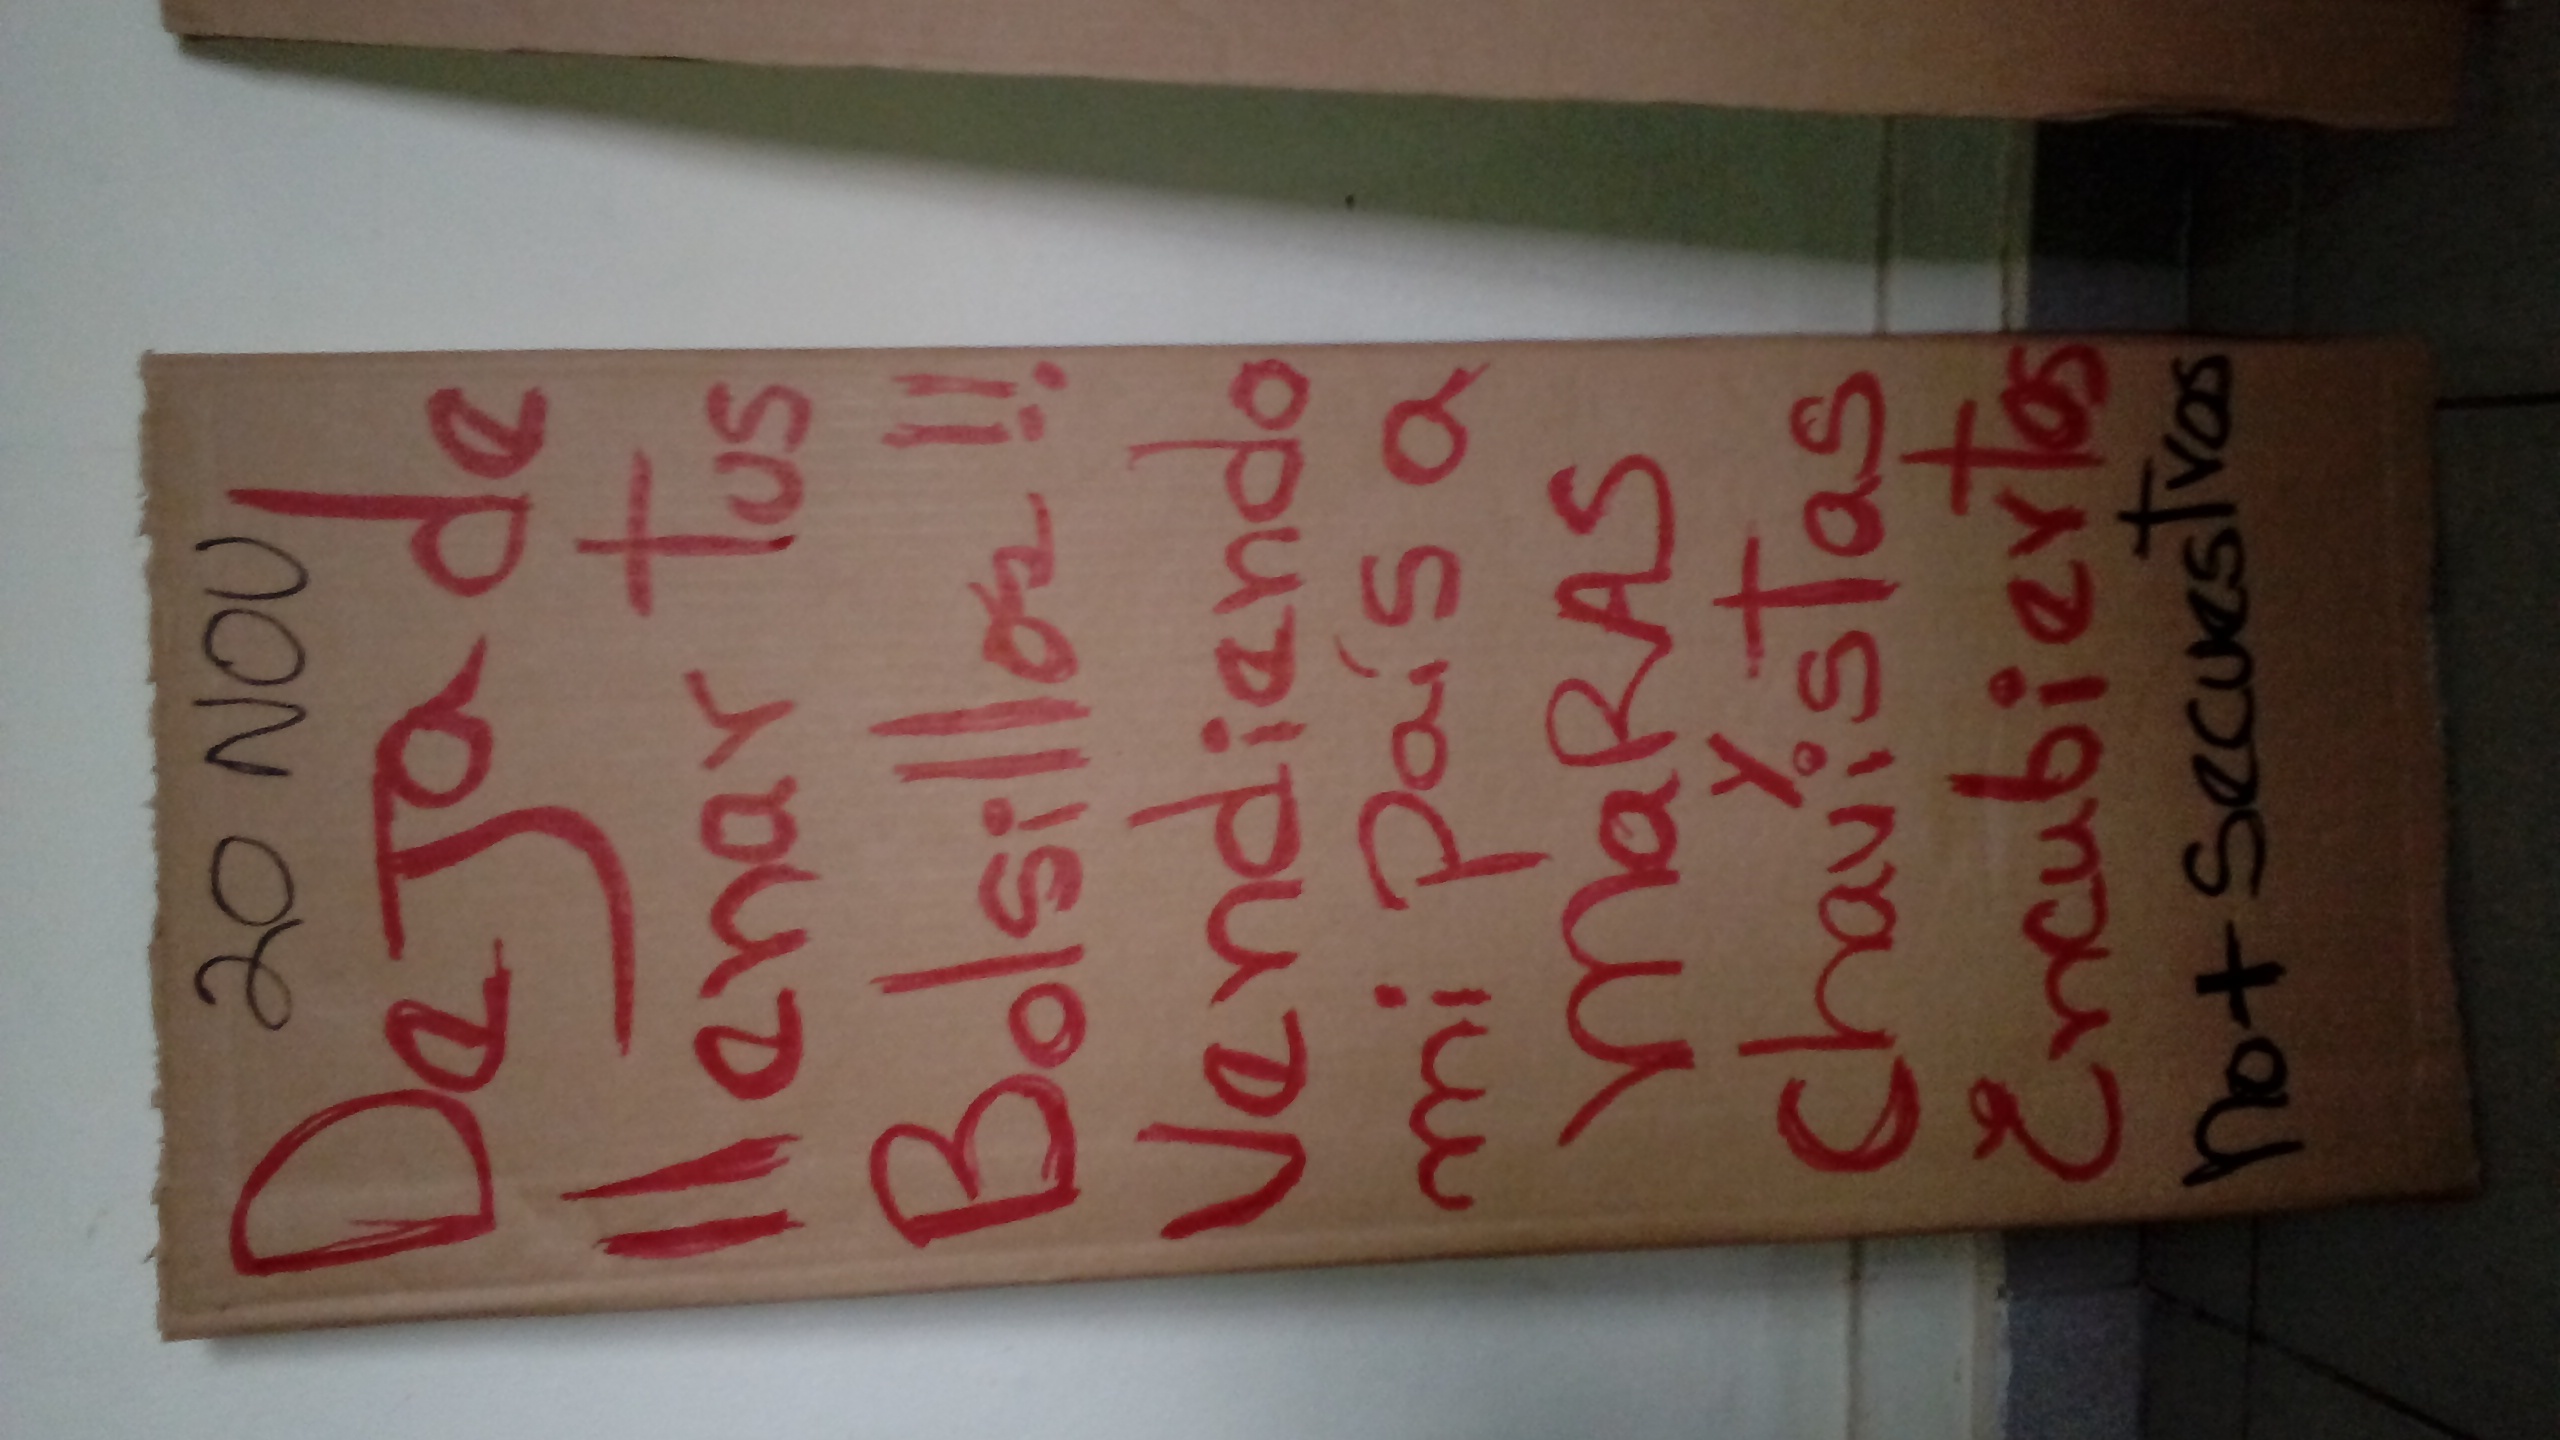 20 NOV
DeJa de
llenar tus
Bolsillos !!
Vendiendo
mi país a
maRAS
y
chavistas
Encubiertos
no + secuestros